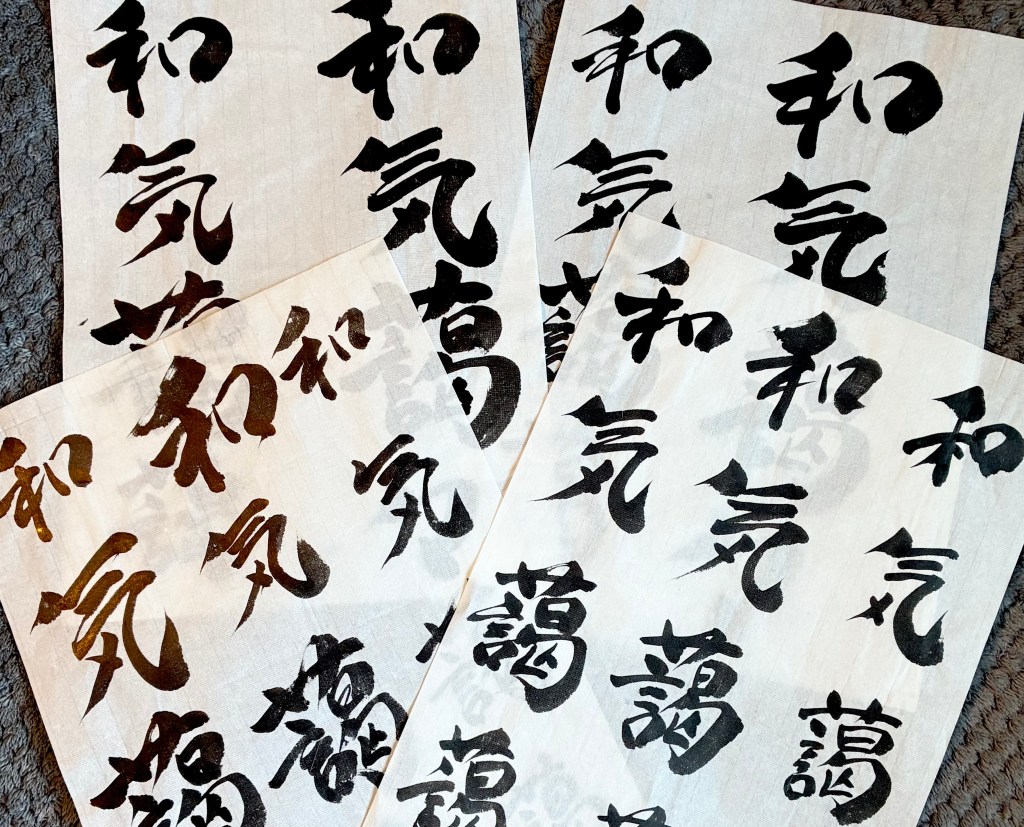 和気
和気
和気藹
和気
和気藹
和気藹
和気藹藹
和気
和気藹
和気藹